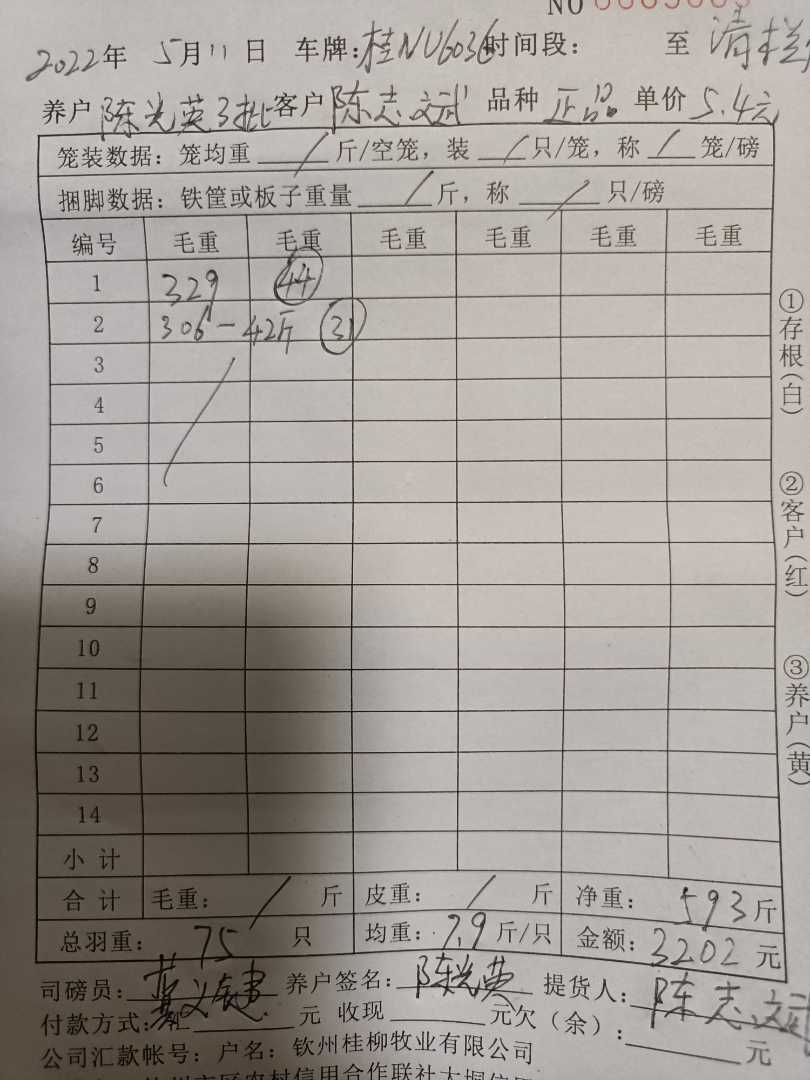 NO
2022年 5月11日 车牌:桂NU6036 时间段: 至 清栏
养户 陈光英3批 客户 陈志斌 品种 正品 单价 5.4元
笼装数据: 笼均重 / 斤/空笼, 装 / 只/笼, 称 / 笼/磅
捆脚数据: 铁筐或板子重量 / 斤, 称 / 只/磅
编号 毛重 毛重 毛重 毛重 毛重 毛重
1 329 44
2 306-42斤 31
3
4
5
6
7
8
9
10
11
12
13
14
小计
合计 毛重: / 斤 皮重: / 斤 净重: 593斤
总羽重: 75 只 均重: 7.9斤/只 金额: 3202元
司磅员: 养户签名: 陈光英 提货人: 陈志斌
付款方式: 汇 元 收现 元欠(余): 元
公司汇款帐号: 户名: 钦州桂柳牧业有限公司
①存根(白)
②客户(红)
③养户(黄)